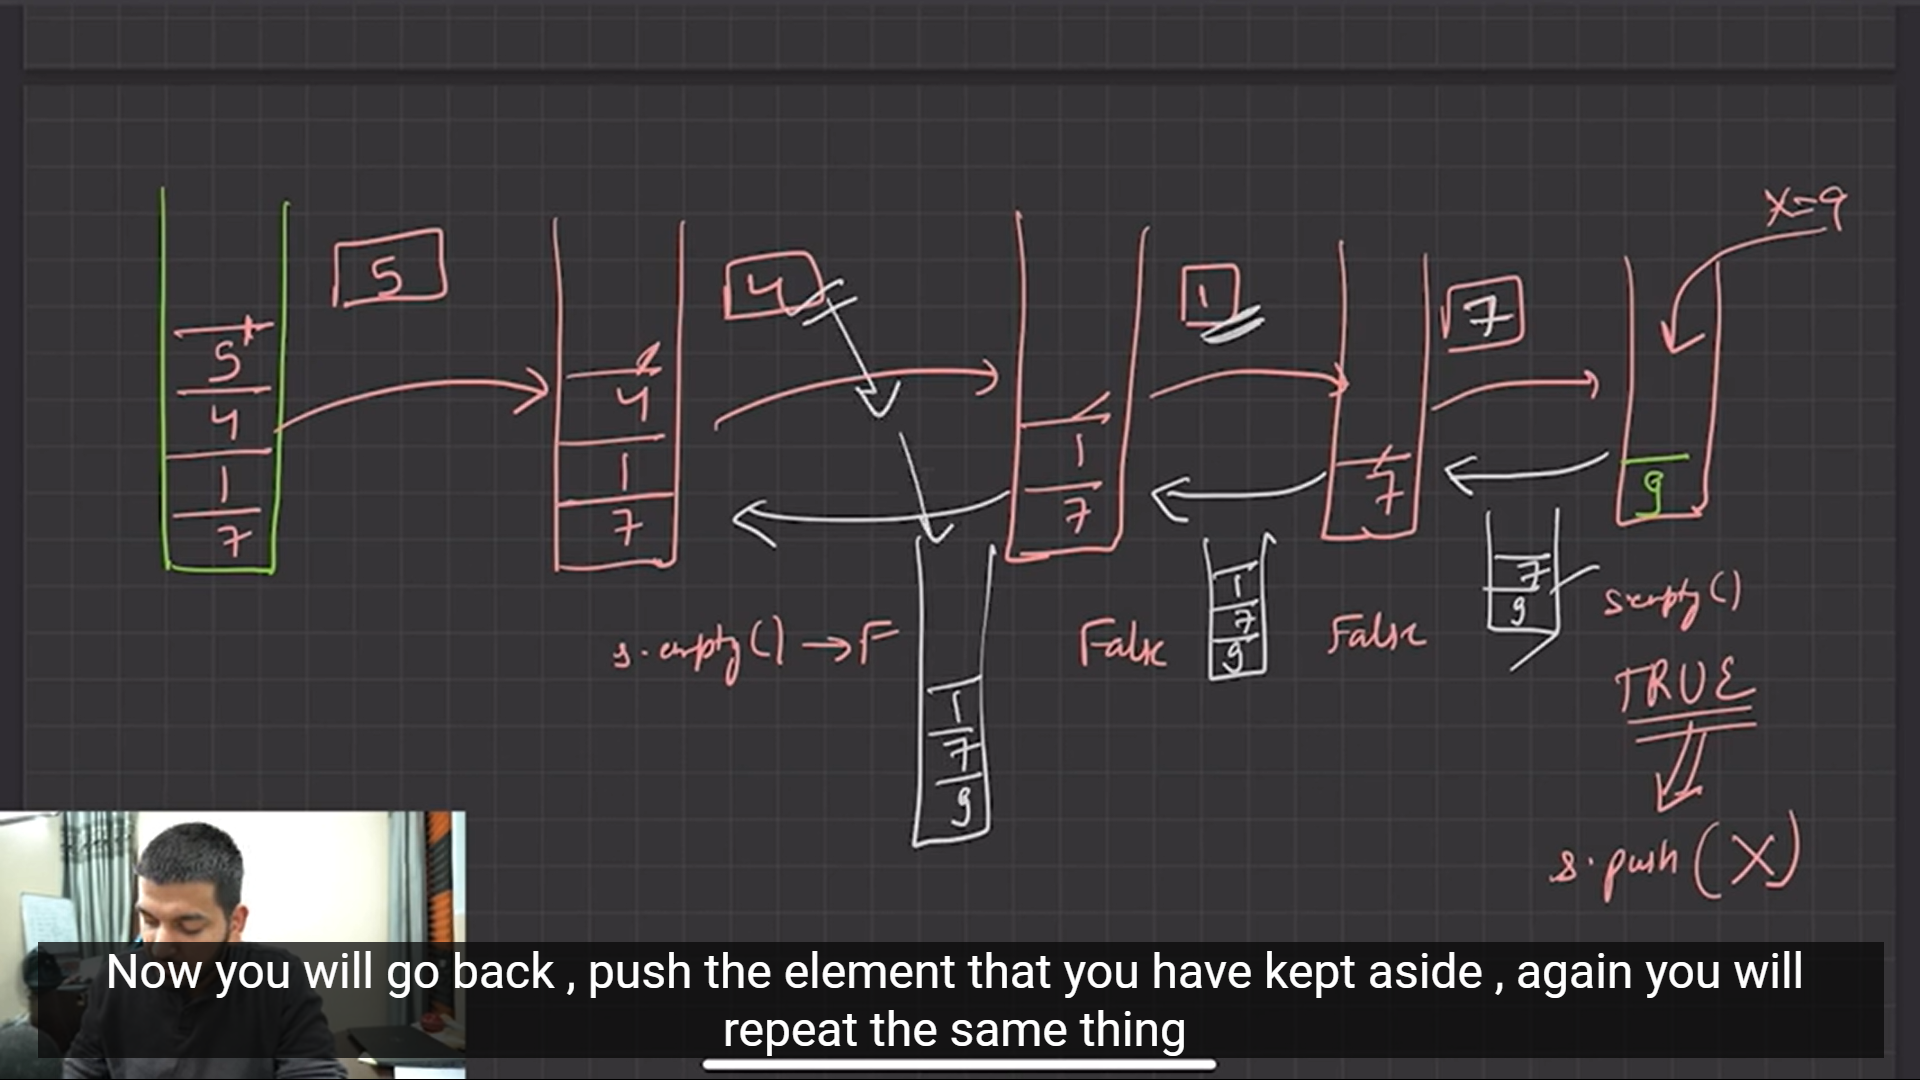 x=9
5
4
1
7
5
4
1
7
4
1
7
1
7
7
9
s.empty() → F
False
False
s.empty()
TRUE
s.push(X)
1
7
9
1
7
9
7
9
Now you will go back , push the element that you have kept aside , again you will
repeat the same thing